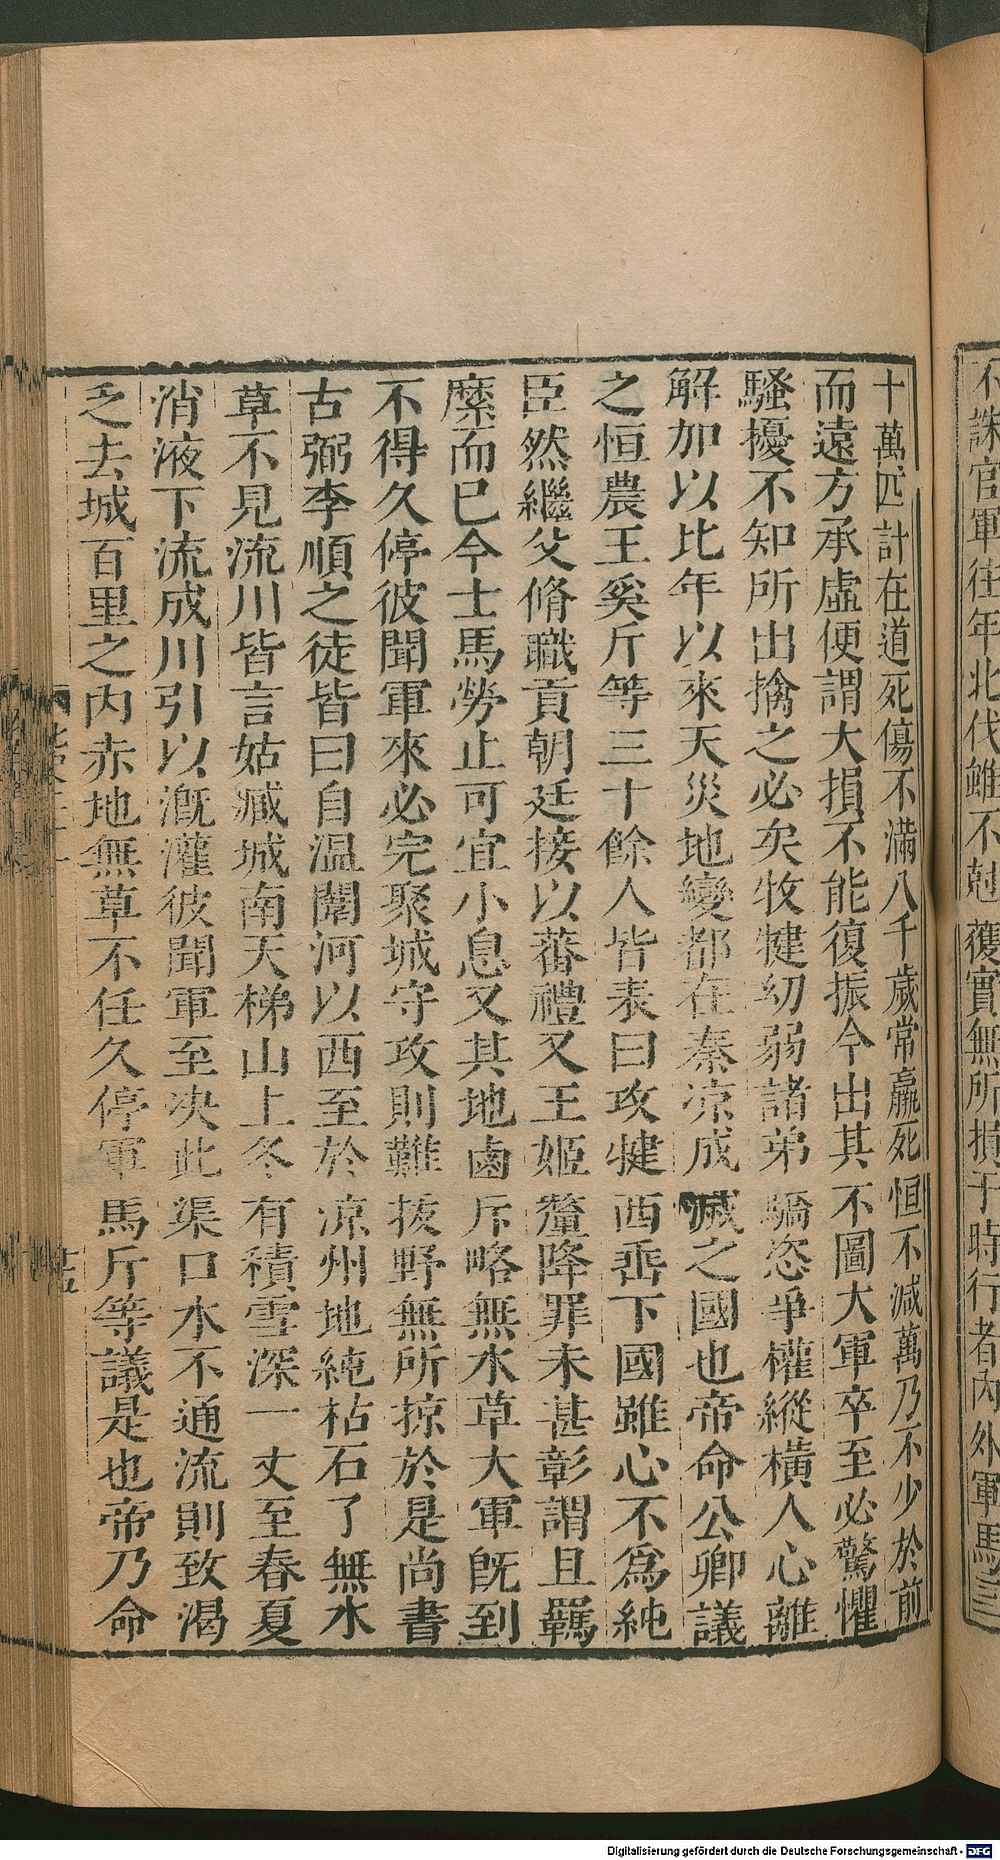 不誅官軍往年北伐雖不尅獲實無所損于時行者內外軍馬三
十萬匹計在道死傷不滿八千歲常羸死恒不減萬乃不少於前
而遠方承虛便謂大損不能復振今出其不圖大軍卒至必驚懼
騷擾不知所出擒之必矣牧犍幼弱諸弟驕恣爭權縱橫人心離
解加以比年以來天災地變都在秦涼成滅之國也帝命公卿議
之恒農王奚斤等三十餘人皆表曰攻犍西垂下國雖心不為純
臣然繼父脩職貢朝廷接以蕃禮又王姬釐降罪未甚彰謂且羈
縻而巳今士馬勞止可宜小息又其地鹵斥略無水草大軍旣到
不得久停彼聞軍來必完聚城守攻則難拔野無所掠於是尚書
古弼李順之徒皆曰自溫圉河以西至於涼州地純枯石了無水
草不見流川皆言姑臧城南天梯山上冬有積雪深一丈至春夏
消液下流成川引以漑灌彼聞軍至决此渠口水不通流則致渴
乏去城百里之內赤地無草不任久停軍馬斤等議是也帝乃命
Digitalisierung gefördert durch die Deutsche Forschungsgemeinschaft - DFG